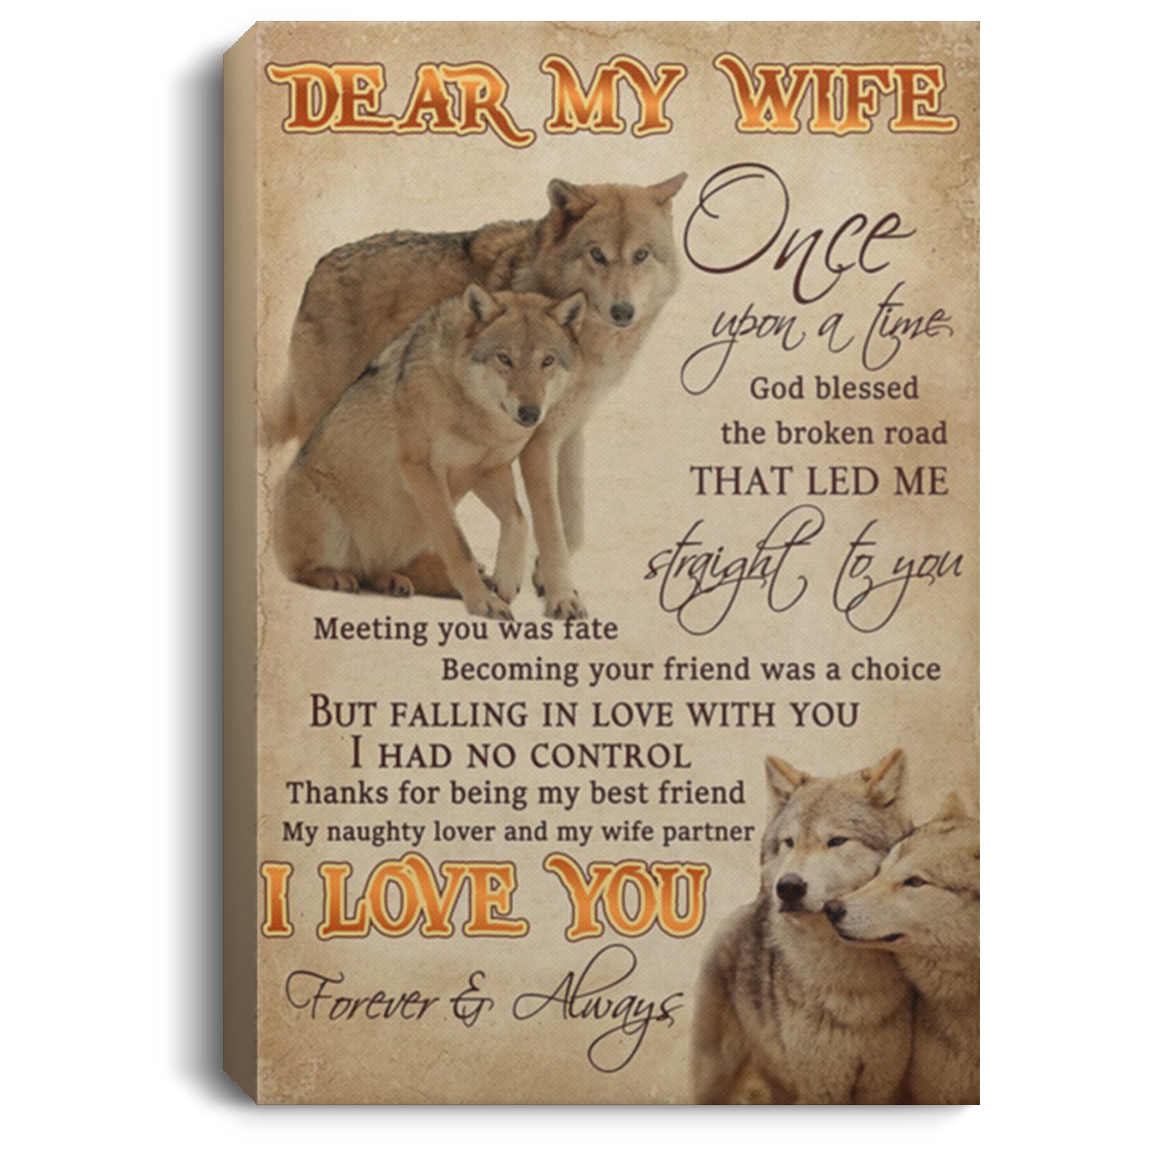 DEAR MY WIFE
Once
upon a time
God blessed
the broken road
THAT LED ME
straight to you
Meeting you was fate
Becoming your friend was a choice
BUT FALLING IN LOVE WITH YOU
I HAD NO CONTROL
Thanks for being my best friend
My naughty lover and my wife partner
I LOVE YOU
Forever & Always